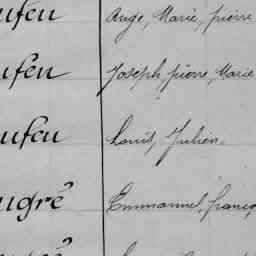 ufeu Ange, Marie, pierre
ufeu Joseph, pierre, Marie
ufeu Louis, Julien.
ugré Emmanuel, franç